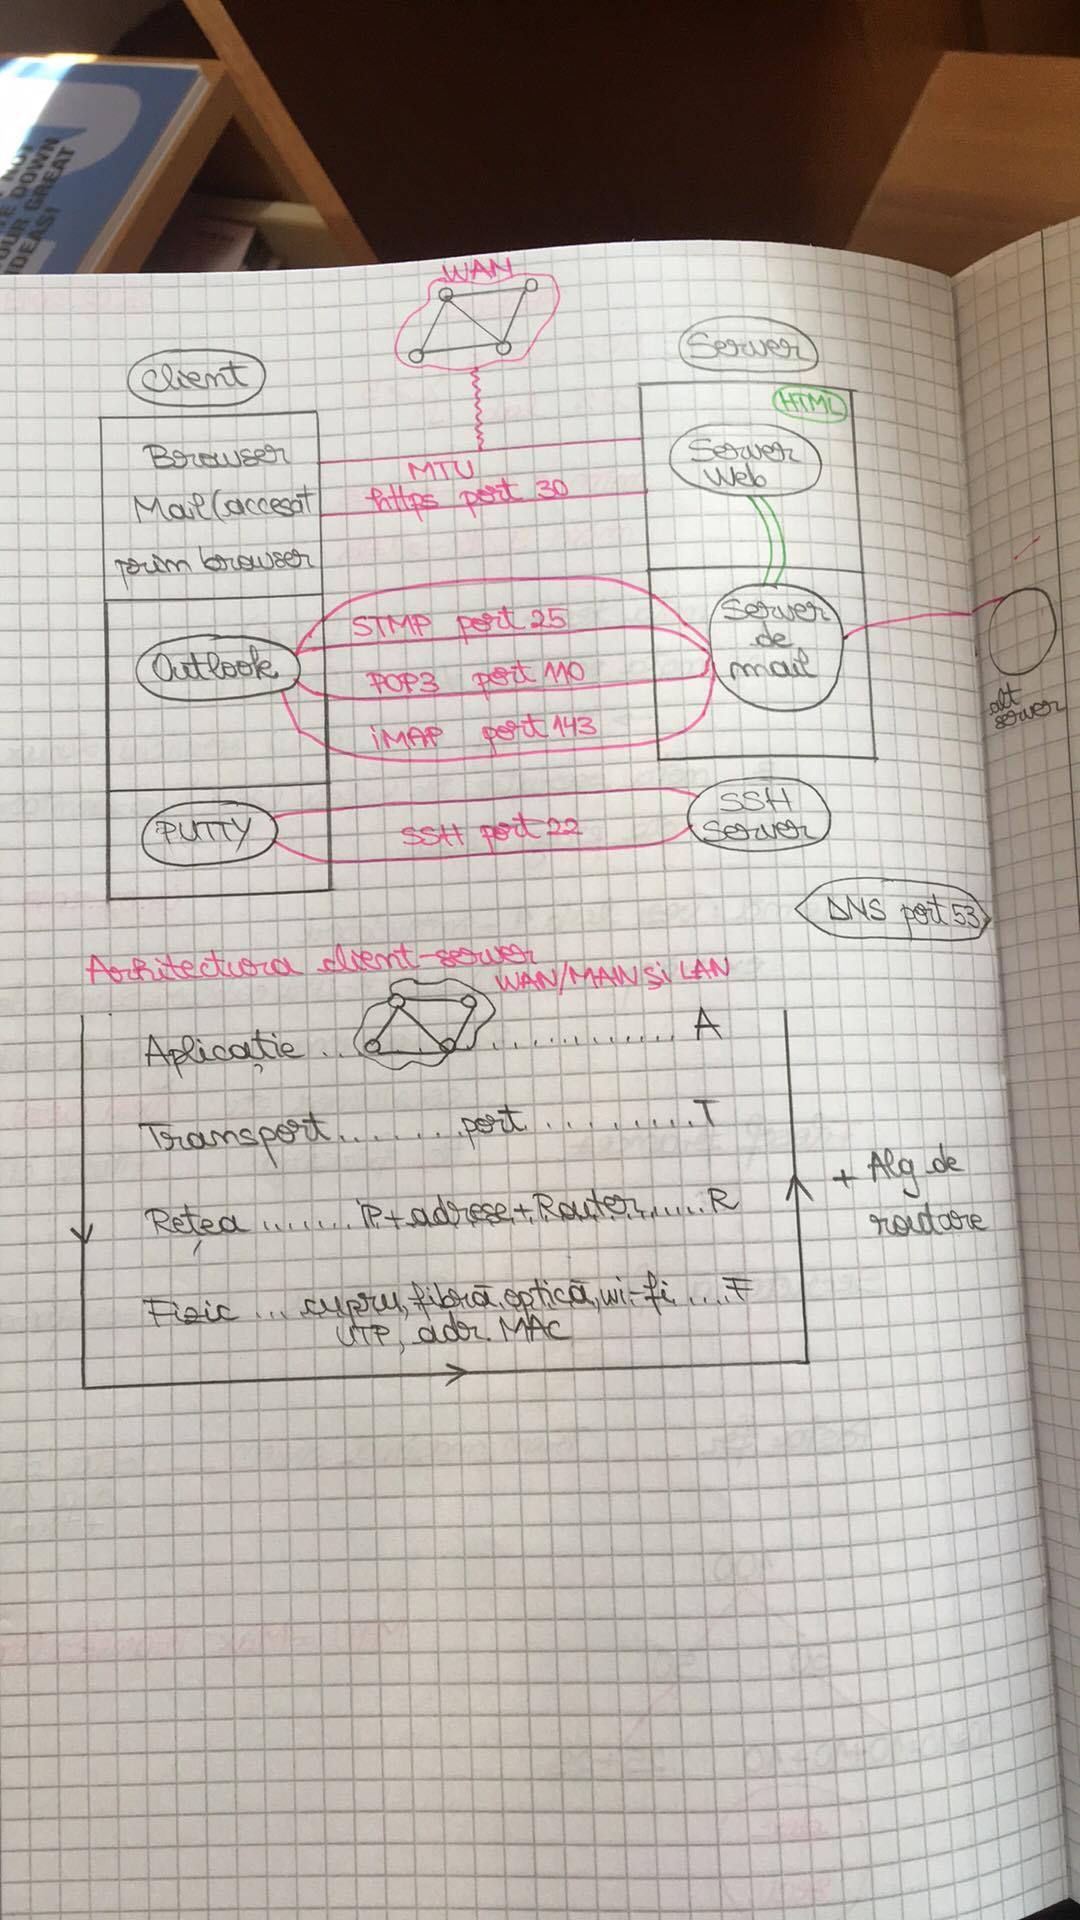 NOT
E DOWN
OUR GREAT
IDEAS!
WAN
Client
Server
HTML
Browser
Mail (accesat
prin browser
MTU
https port 30
Server
Web
Outlook
STMP port 25
POP3 port 110
iMAP port 143
Server
de
mail
alt
server
PUTTY
SSH port 22
SSH
Server
DNS port 53
Arhitectura client-server
WAN/MAN și LAN
Aplicație .................. A
Transport.......port.........T
Rețea ....... IP+adrese+Router......R
Fizic ... cupru, fibră, optică, wi-fi ....F
UTP, adr. MAC
+ Alg de
rutare